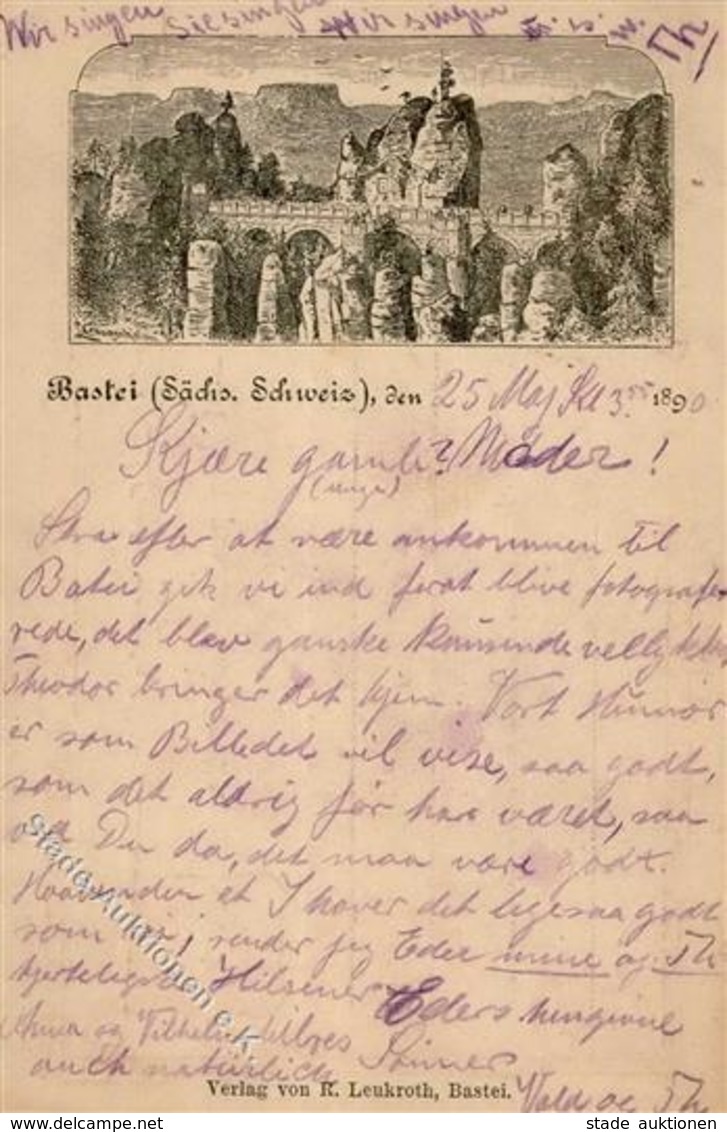 Wir singen Sie singen Wir singen u. s. w. Th
Bastei (Sächs. Schweiz), den 25 Maj Kl 3 1890
Kjære gamle? Møder!
(unge)
Strax efter at være ankommen til
Batei gik vi ind forat blive fotografe
rede, det blev ganske Kausende vellykket
Theodor bringer det hjem. Vort Humør
er som Billedet vil vise, saa godt,
som det aldrig før har været, saa
ved Du da, det maa være godt.
Haabende at I haver det ligesaa godt
som vi, sender jeg Eder mine og Th
hjerteligste Hilsener Eders hengivne
Anna og Vilhelm hilses Sønner
auch natürlich
Vald og Th
Verlag von R. Leukroth, Bastei.
Stade Auktionen e.K.
stade auktionen